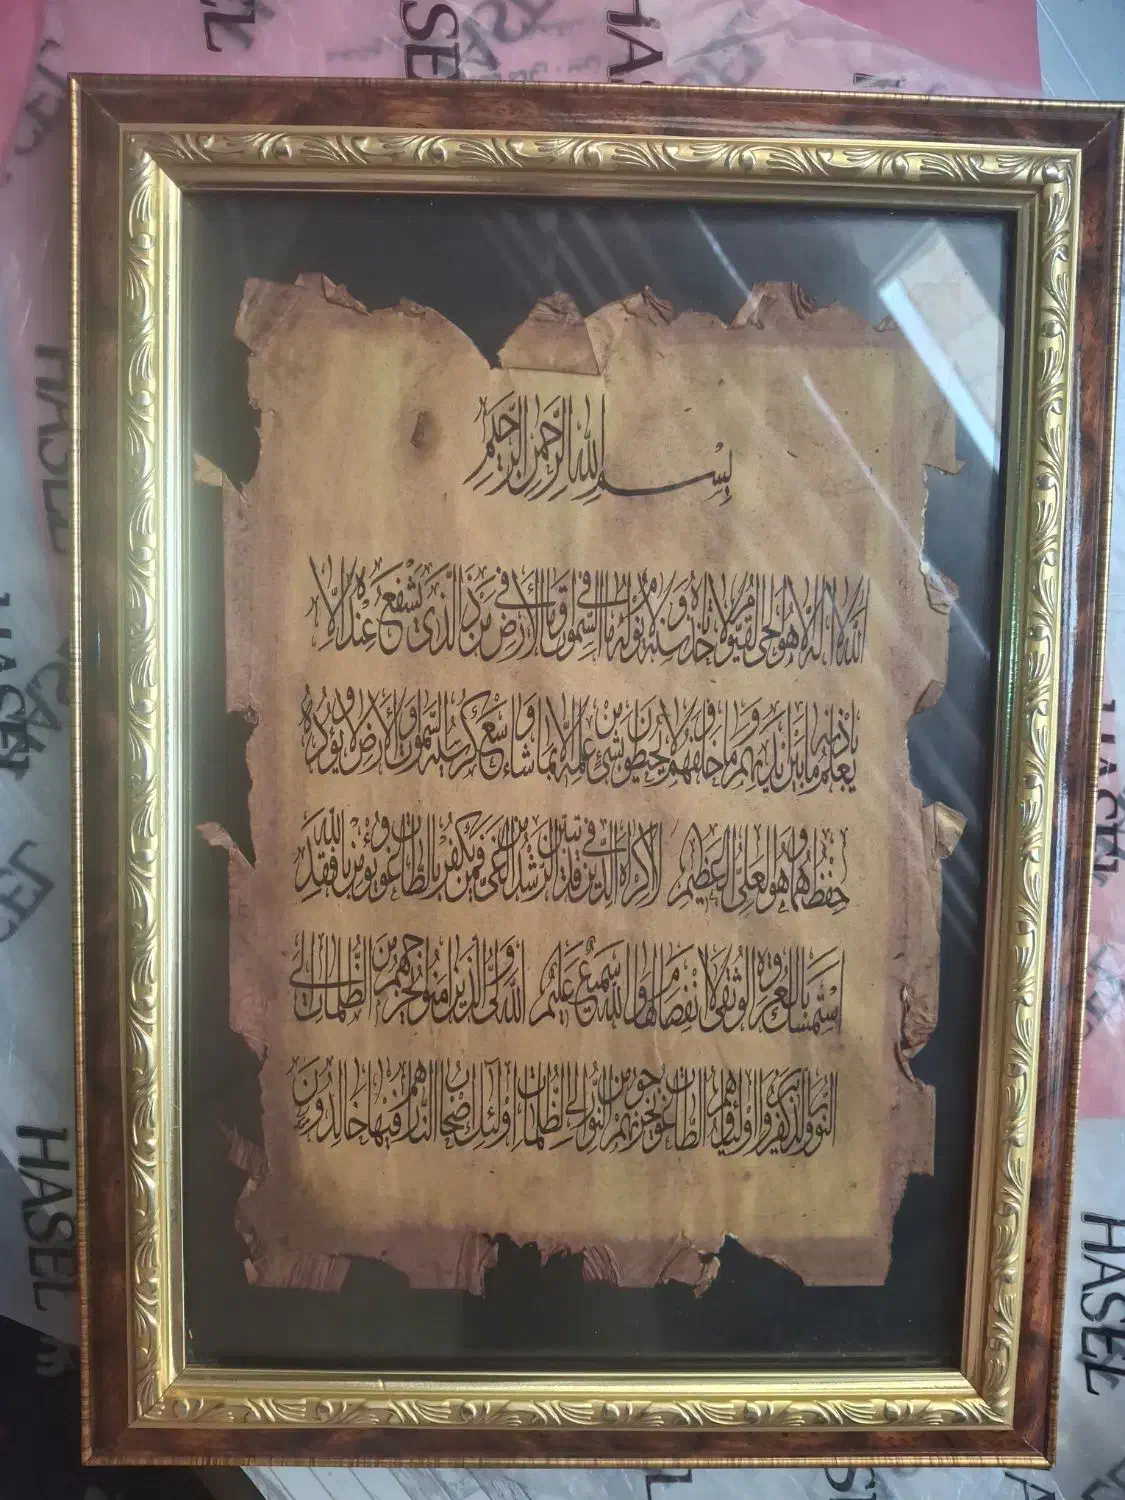 بِسْمِ اللهِ الرَّحْمٰنِ الرَّحِيْمِ
اللهُ لا اله الا هو الحی القیوم لا تاخذه سنة ولا نوم له ما فی السموات وما فی الارض من ذالذی یشفع عنده الا
باذنه یعلم ما بین ایدیهم وما خلفهم ولا یحیطون بشئ من علمه الا بما شاء وسع کرسیه السموات والارض ولا یؤده
حفظهما وهو العلی العظیم لا اکراه فی الدین قد تبین الرشد من الغی فمن یکفر بالطاغوت ویؤمن بالله فقد
استمسک بالعروة الوثقی لا انفصام لها والله سمیع علیم الله ولی الذین امنوا یخرجهم من الظلمات الی
النور والذین کفروا اولیاؤهم الطاغوت یخرجونهم من النور الی الظلمات اولئک اصحاب النار هم فیها خالدون
HASEL
HASEL
HASEL
HASEL